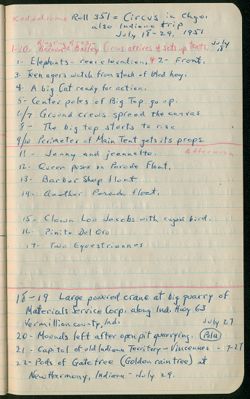 Kodachrome Roll 351 = Circus in Chgo.
also Indiana trip
July 18-29, 1951
1-10. Barnum & Bailey Circus arrives & sets up tents. July 18
1- Elephants - rear elevation, & 2- Front.
3- Teenagers watch from stack of blvd hwy.
4- A big Cat ready for action.
5- Center poles of Big Top go up.
6/7 Ground crews spread the canvas
8- The big top starts to rise
9/10 Perimeter of Main Tent gets its props
11- Jenny and Jeannette.
12- Queen poses in Parade Float.
13- Barber Shop float
14- Another Parade float.
15- Clown Lou Jacobs with
16- Pinito Del Oro
17- Two Equestriennes
18-19 Large powered crane at big quarry of
Materials Service Corp. along Ind. Hwy 63
Vermillion county, Ind. July 27
20- Mounds left after open pit quarrying.
21- Capitol of old Indiana Territory - Vincennes - 7-27
22- Pods of Gate tree (Golden raintree) at
New Harmony, Indiana - July 29.